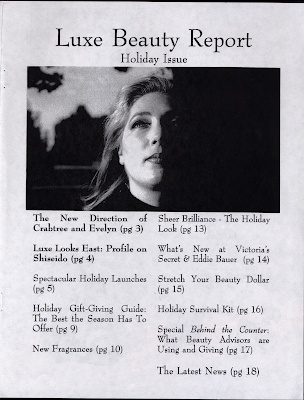 Luxe Beauty Report
Holiday Issue
The New Direction of
Crabtree and Evelyn (pg 3)
Luxe Looks East: Profile on
Shiseido (pg 4)
Spectacular Holiday Launches
(pg 5)
Holiday Gift-Giving Guide:
The Best the Season Has To
Offer (pg 9)
New Fragrances (pg 10)
Sheer Brilliance - The Holiday
Look (pg 13)
What's New at Victoria's
Secret & Eddie Bauer (pg 14)
Stretch Your Beauty Dollar
(pg 15)
Holiday Survival Kit (pg 16)
Special Behind the Counter:
What Beauty Advisors are
Using and Giving (pg 17)
The Latest News (pg 18)